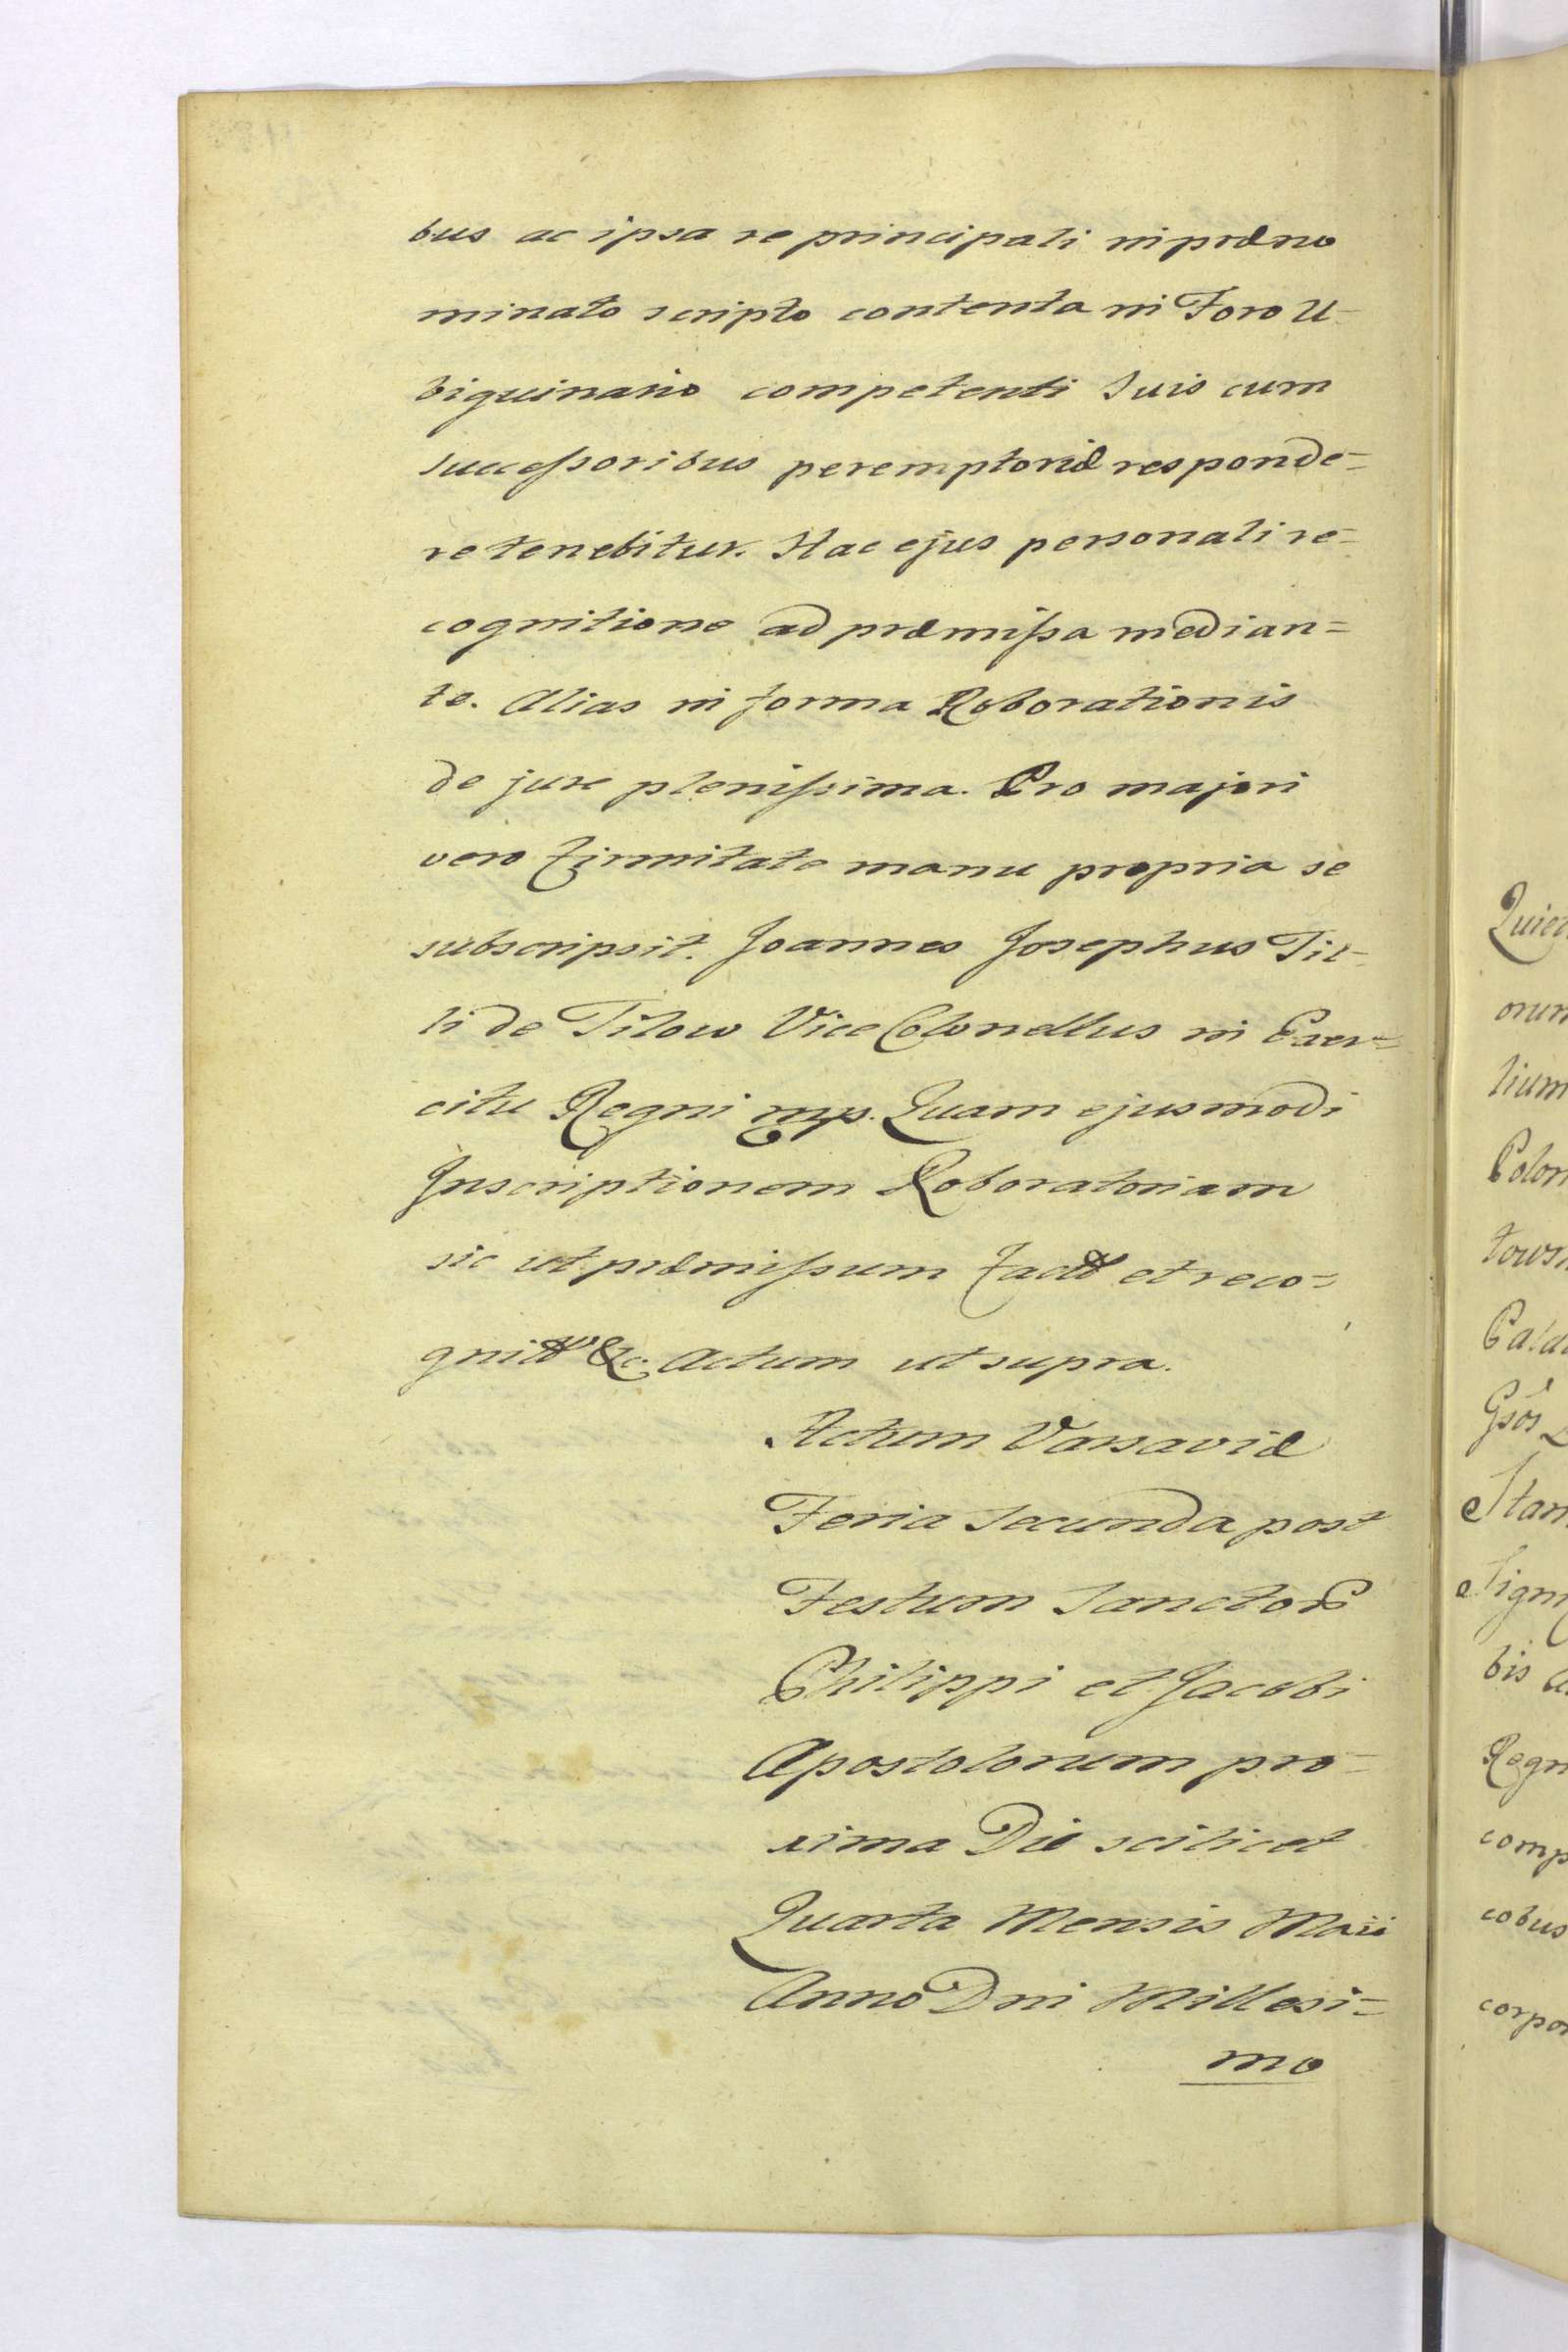 bus ac ipsa re principali in præno
minato scripto contenta in Foro U-
biquinario competenti suis cum
successoribus peremptorie responde=
re tenebitur. Hac ejus personali re=
cognitione ad præmissa median=
te. Alias in forma Roborationis
de jure plenissima. Pro majori
vero firmitate manu propria se
subscripsit. Joannes Josephus Til-
li de Tilow Vice Colonellus in Exer=
citu Regni mp. Quam ejusmodi
Inscriptionem Roboratoriam
sic ut præmissum fact et reco=
gnit &c. Actum ut supra.
Actum Varsaviæ
Feria Secunda post
Festum Sanctor
Philippi et Jacobi
Apostolorum pro=
xima Die scilicet
Quarta Mensis Maii
Anno Dni Millesi=
mo
Quiet
onum
lium
Polon
tows
Pala
Gsós
Stan
Sign
bis
Regn
comp
cobus
corpor